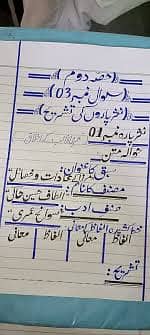 (حصہ دوم)
(سوال نمبر 03)
(نثر پاروں کی تشریح)
نثر پارہ نمبر 01
حوالہ متن:
سبق کا عنوان: مرزا غالب کے عادات و خصائل
مصنف کا نام: الطاف حسین حالی
صنف ادب: سوانح عمری
الفاظ معانی الفاظ معانی
تشریح: